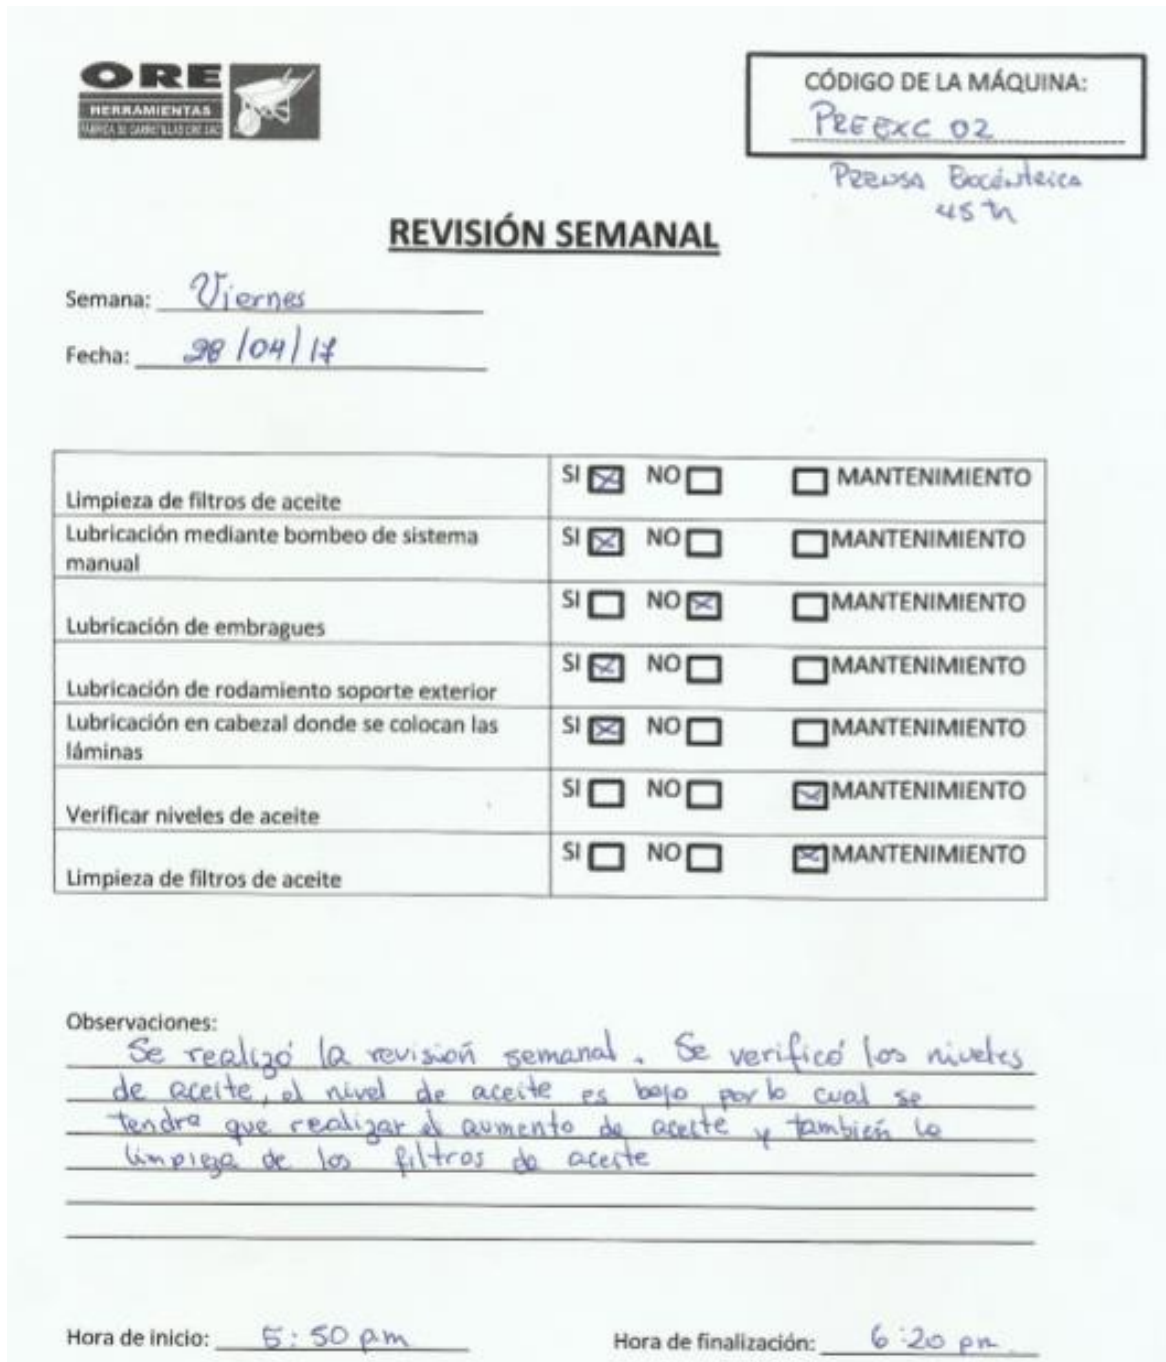 ORE
HERRAMIENTAS
FÁBRICA DE CARRETILLAS ORE SAC
CÓDIGO DE LA MÁQUINA:
PREEXC 02
PRENSA Excéntrica
45 tn
REVISIÓN SEMANAL
Semana: Viernes
Fecha: 28/04/17
Limpieza de filtros de aceite SI NO MANTENIMIENTO
Lubricación mediante bombeo de sistema
manual SI NO MANTENIMIENTO
Lubricación de embragues SI NO MANTENIMIENTO
Lubricación de rodamiento soporte exterior SI NO MANTENIMIENTO
Lubricación en cabezal donde se colocan las
láminas SI NO MANTENIMIENTO
Verificar niveles de aceite SI NO MANTENIMIENTO
Limpieza de filtros de aceite SI NO MANTENIMIENTO
Observaciones:
Se realizó la revisión semanal. Se verificó los niveles
de aceite, el nivel de aceite es bajo por lo cual se
tendra que realizar el aumento de aceite y también la
limpieza de los filtros de aceite
Hora de inicio: 5:50 pm Hora de finalización: 6:20 pm